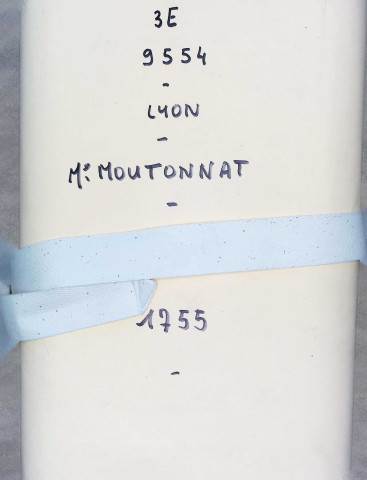 3E
9554
-
LYON
-
Me: MOUTONNAT
-
1755
-